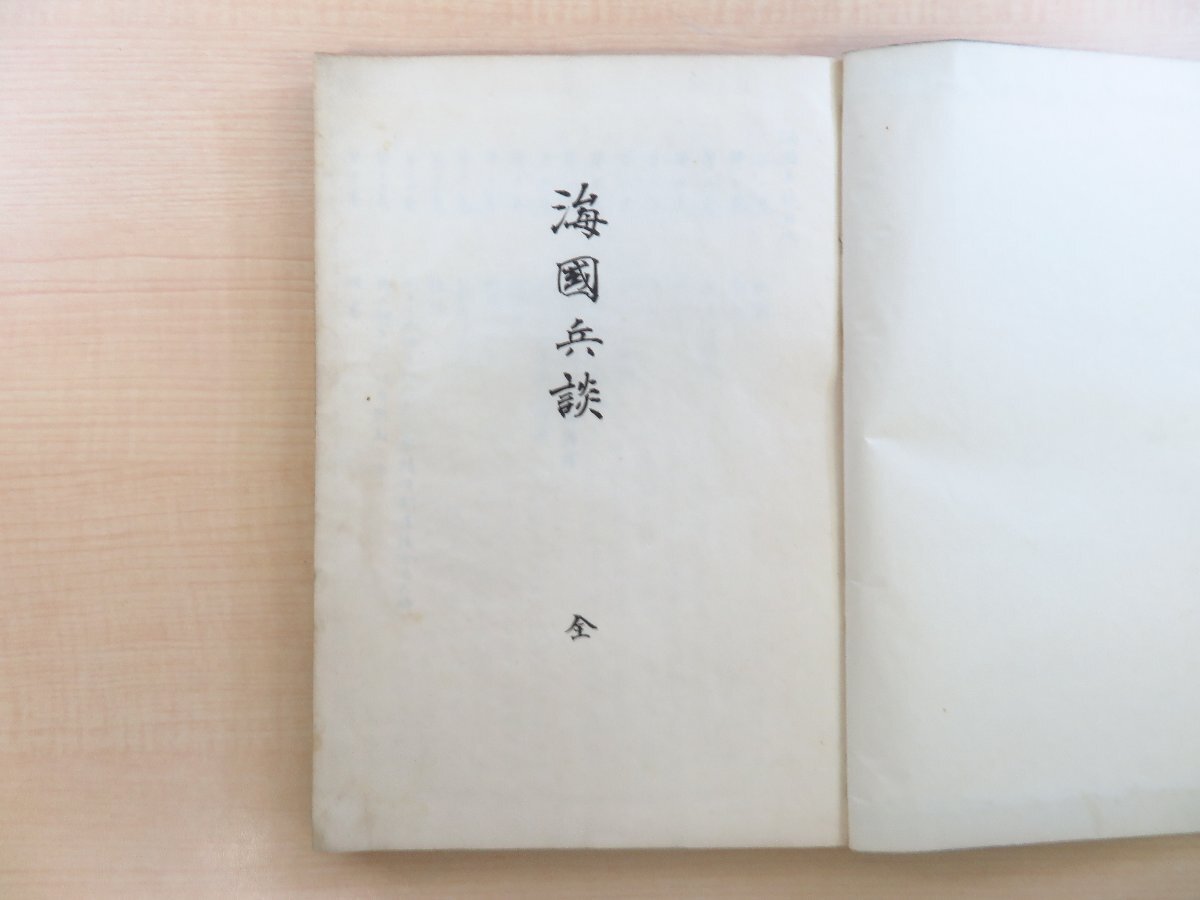 海國兵談
全